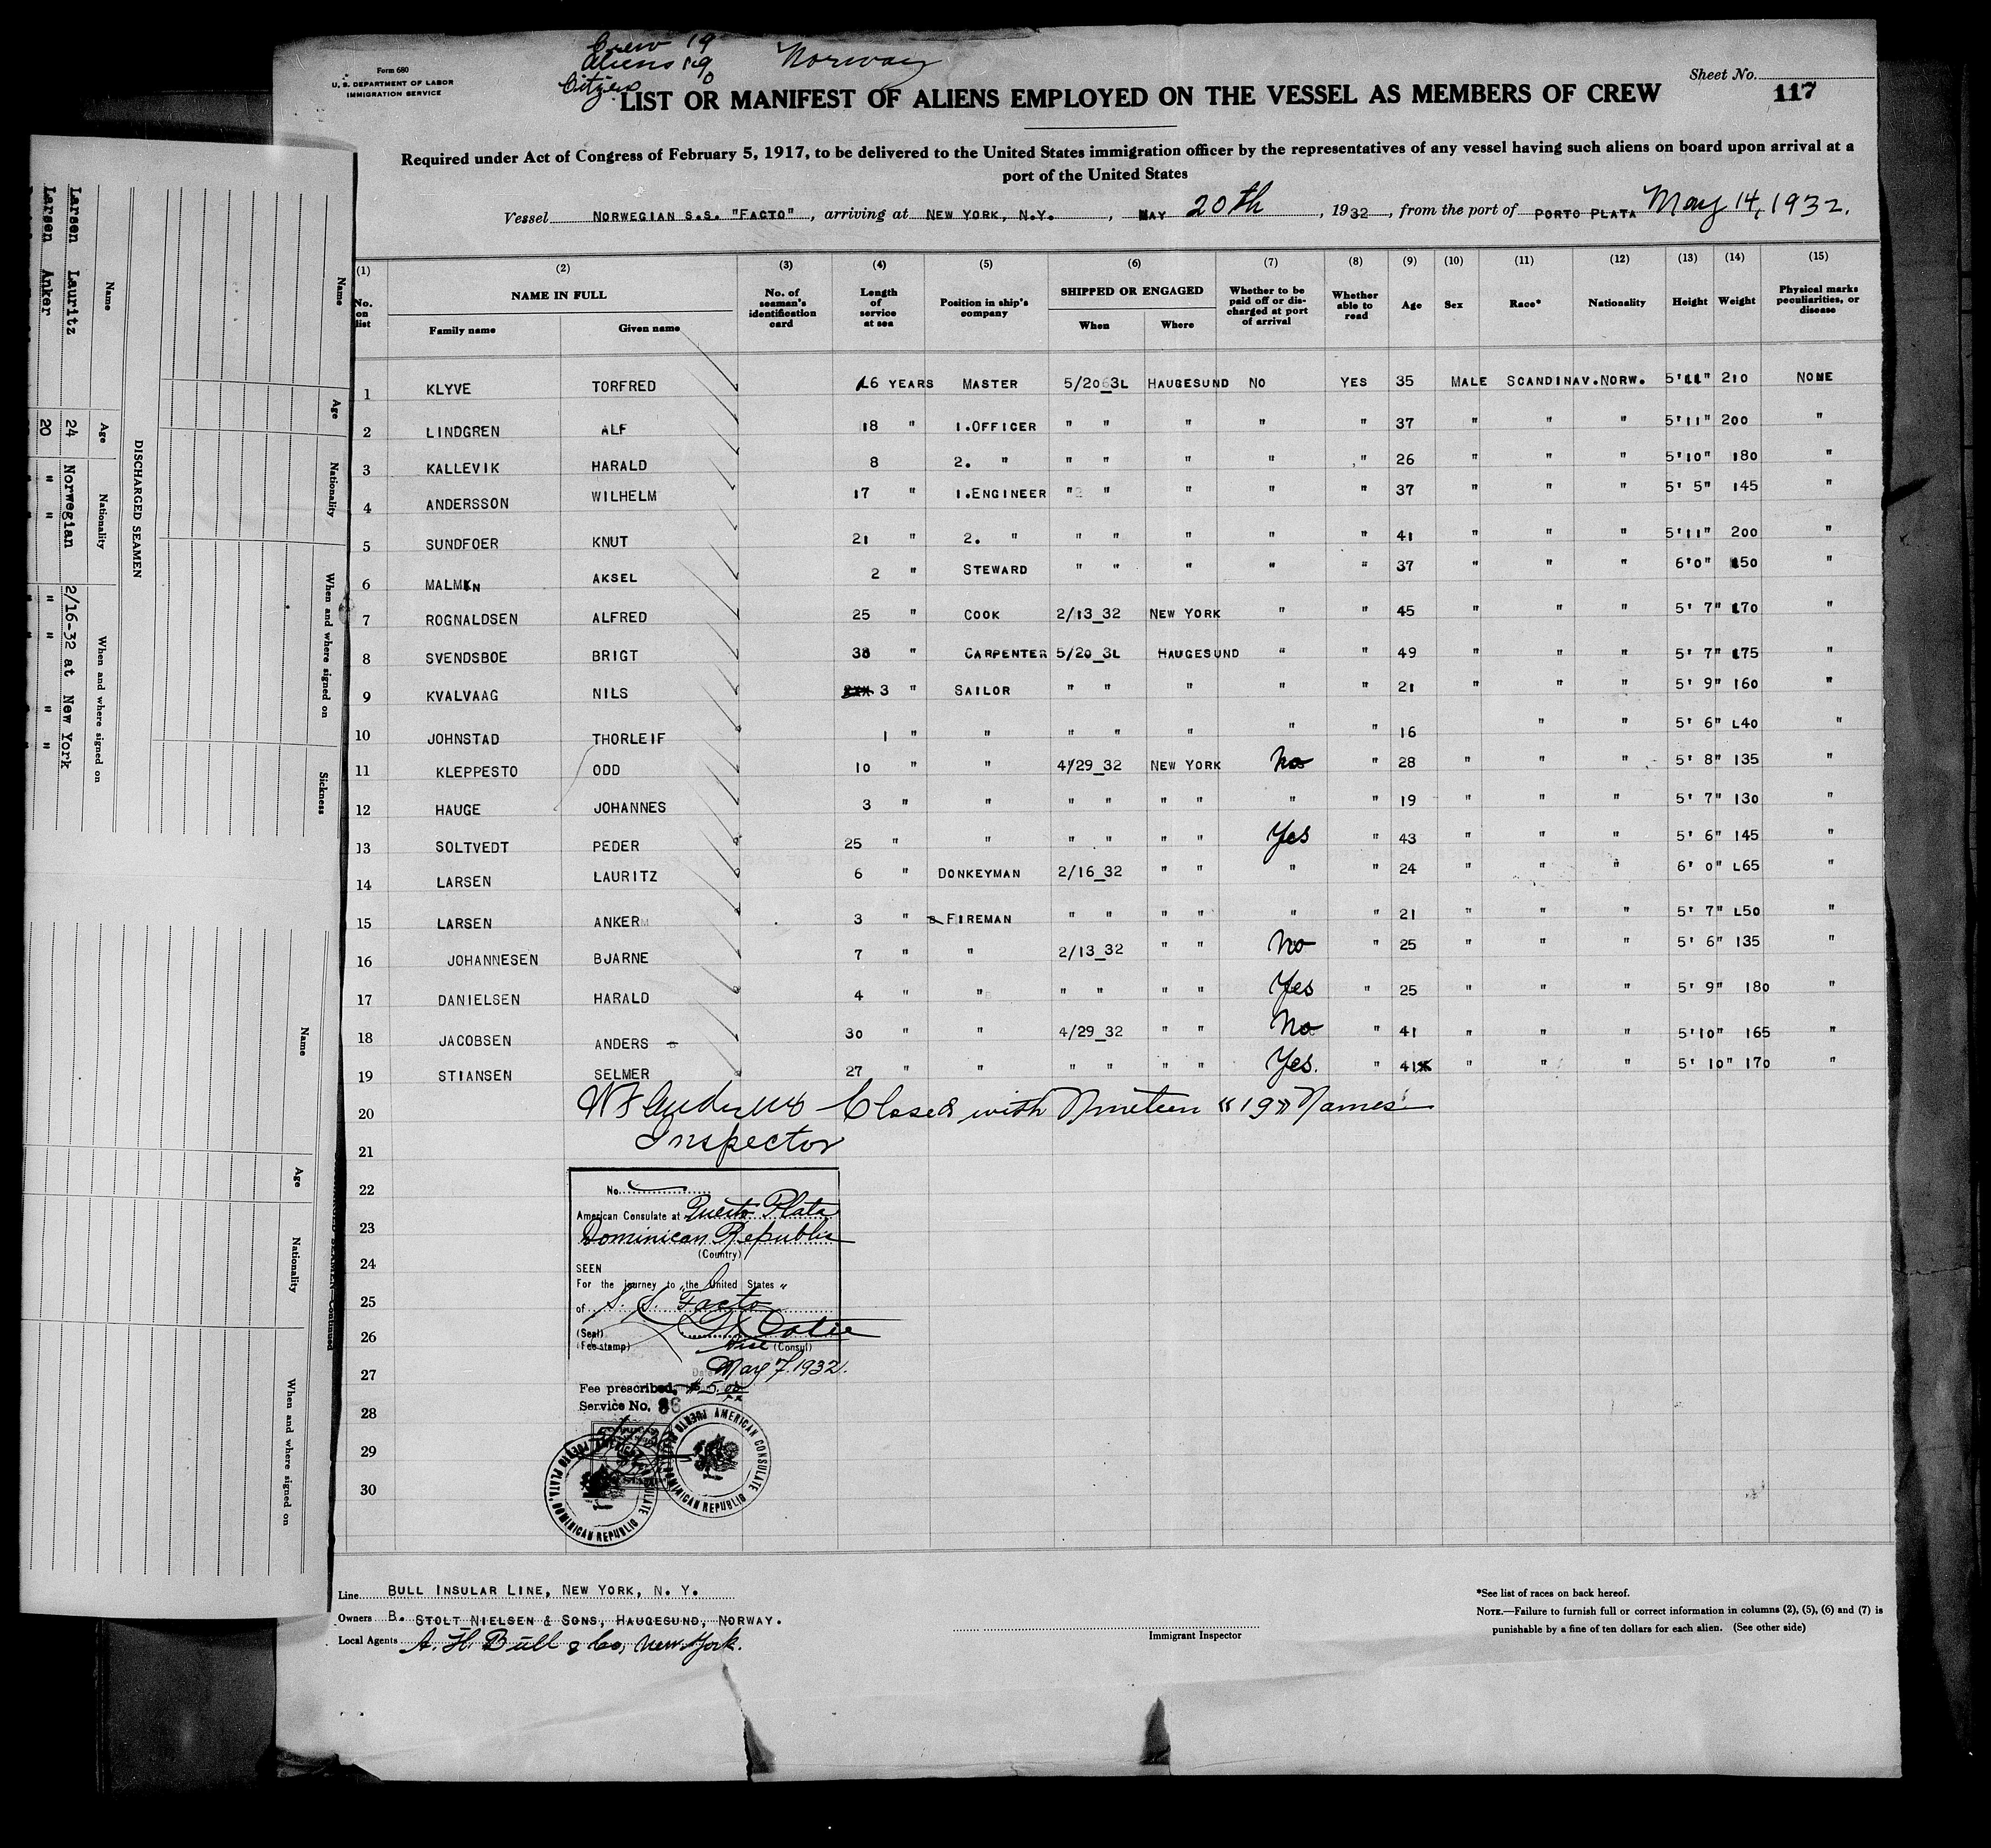 Crew 19
Aliens 19
Citizens 0
Norway
Form 680
U. S. DEPARTMENT OF LABOR
IMMIGRATION SERVICE
Sheet No.
117
LIST OR MANIFEST OF ALIENS EMPLOYED ON THE VESSEL AS MEMBERS OF CREW
Required under Act of Congress of February 5, 1917, to be delivered to the United States immigration officer by the representatives of any vessel having such aliens on board upon arrival at a
port of the United States
Vessel NORWEGIAN S.S. "FACTO", arriving at NEW YORK, N.Y., MAY 20th, 1932, from the port of PORTO PLATA May 14, 1932.
(1) (2) (3) (4) (5) (6) (7) (8) (9) (10) (11) (12) (13) (14) (15)
No. on list NAME IN FULL Family name Given name No. of seaman's identification card Length of service at sea Position in ship's company SHIPPED OR ENGAGED When Where Whether to be paid off or discharged at port of arrival Whether able to read Age Sex Race* Nationality Height Weight Physical marks peculiarities, or disease
1 KLYVE TORFRED 16 YEARS MASTER 5/20_3L HAUGESUND NO YES 35 MALE SCANDINAV. NORW. 5'11" 210 NONE
2 LINDGREN ALF 18 " 1.OFFICER " " " " " 37 " " " 5'11" 200 "
3 KALLEVIK HARALD 8 2. " " " " " " 26 " " " 5'10" 180 "
4 ANDERSSON WILHELM 17 " 1.ENGINEER " " " " " 37 " " " 5' 5" 145 "
5 SUNDFOER KNUT 21 " 2. " " " " " " 41 " " " 5'11" 200 "
6 MALMIN AKSEL 2 " STEWARD " " " " " 37 " " " 6'0" 150 "
7 ROGNALDSEN ALFRED 25 " COOK 2/13_32 NEW YORK " " 45 " " " 5' 7" 170 "
8 SVENDSBOE BRIGT 38 " CARPENTER 5/20_3L HAUGESUND " " 49 " " " 5' 7" 175 "
9 KVALVAAG NILS 3 " SAILOR " " " " " 21 " " " 5' 9" 160 "
10 JOHNSTAD THORLEIF 1 " " " " " " " 16 " " 5' 6" L40 "
11 KLEPPESTO ODD 10 " " 4/29_32 NEW YORK No " 28 " " " 5' 8" 135 "
12 HAUGE JOHANNES 3 " " " " " " " " 19 " " " 5' 7" 130 "
13 SOLTVEDT PEDER 25 " " " " " " Yes " 43 " " " 5' 6" 145 "
14 LARSEN LAURITZ 6 " DONKEYMAN 2/16_32 " " " " 24 " " " 6' 0" L65 "
15 LARSEN ANKER 3 " FIREMAN " " " " " " 21 " " " 5' 7" L50 "
16 JOHANNESEN BJARNE 7 " " 2/13_32 " " No " 25 " " " 5' 6" 135 "
17 DANIELSEN HARALD 4 " " " " " " Yes " 25 " " " 5' 9" 180 "
18 JACOBSEN ANDERS 30 " " 4/29_32 " " No " 41 " " " 5'10" 165 "
19 STIANSEN SELMER 27 " " " " " " Yes. " 41 " " " 5' 10" 170 "
20 Closed with Nineteen "19" Names
21 Inspector
22
23
24
25
26
27
28
29
30
No.
American Consulate at Puerto Plata
Dominican Republic
(Country)
SEEN
For the journey to the United States
of S. S. Facto
(Seal)
(Fee stamp) Vice (Consul)
May 7, 1932.
Fee prescribed, $ 5.00
Service No. 86
AMERICAN CONSULATE PUERTO PLATA, DOMINICAN REPUBLIC
AMERICAN CONSULATE PUERTO PLATA, DOMINICAN REPUBLIC
Line BULL INSULAR LINE, NEW YORK, N. Y.
Owners B. STOLT NIELSEN & SONS, HAUGESUND, NORWAY.
Local Agents A. H. Bull & Co, New York.
Immigrant Inspector
*See list of races on back hereof.
NOTE.—Failure to furnish full or correct information in columns (2), (5), (6) and (7) is
punishable by a fine of ten dollars for each alien. (See other side)
DISCHARGED SEAMEN
Name Age Nationality When and where signed on
Larsen Lauritz 24 Norwegian 2/16-32 at New York
Larsen Anker 20 " " " " " "
Name Age Nationality When and where signed on Sickness
Name Age Nationality When and where signed on